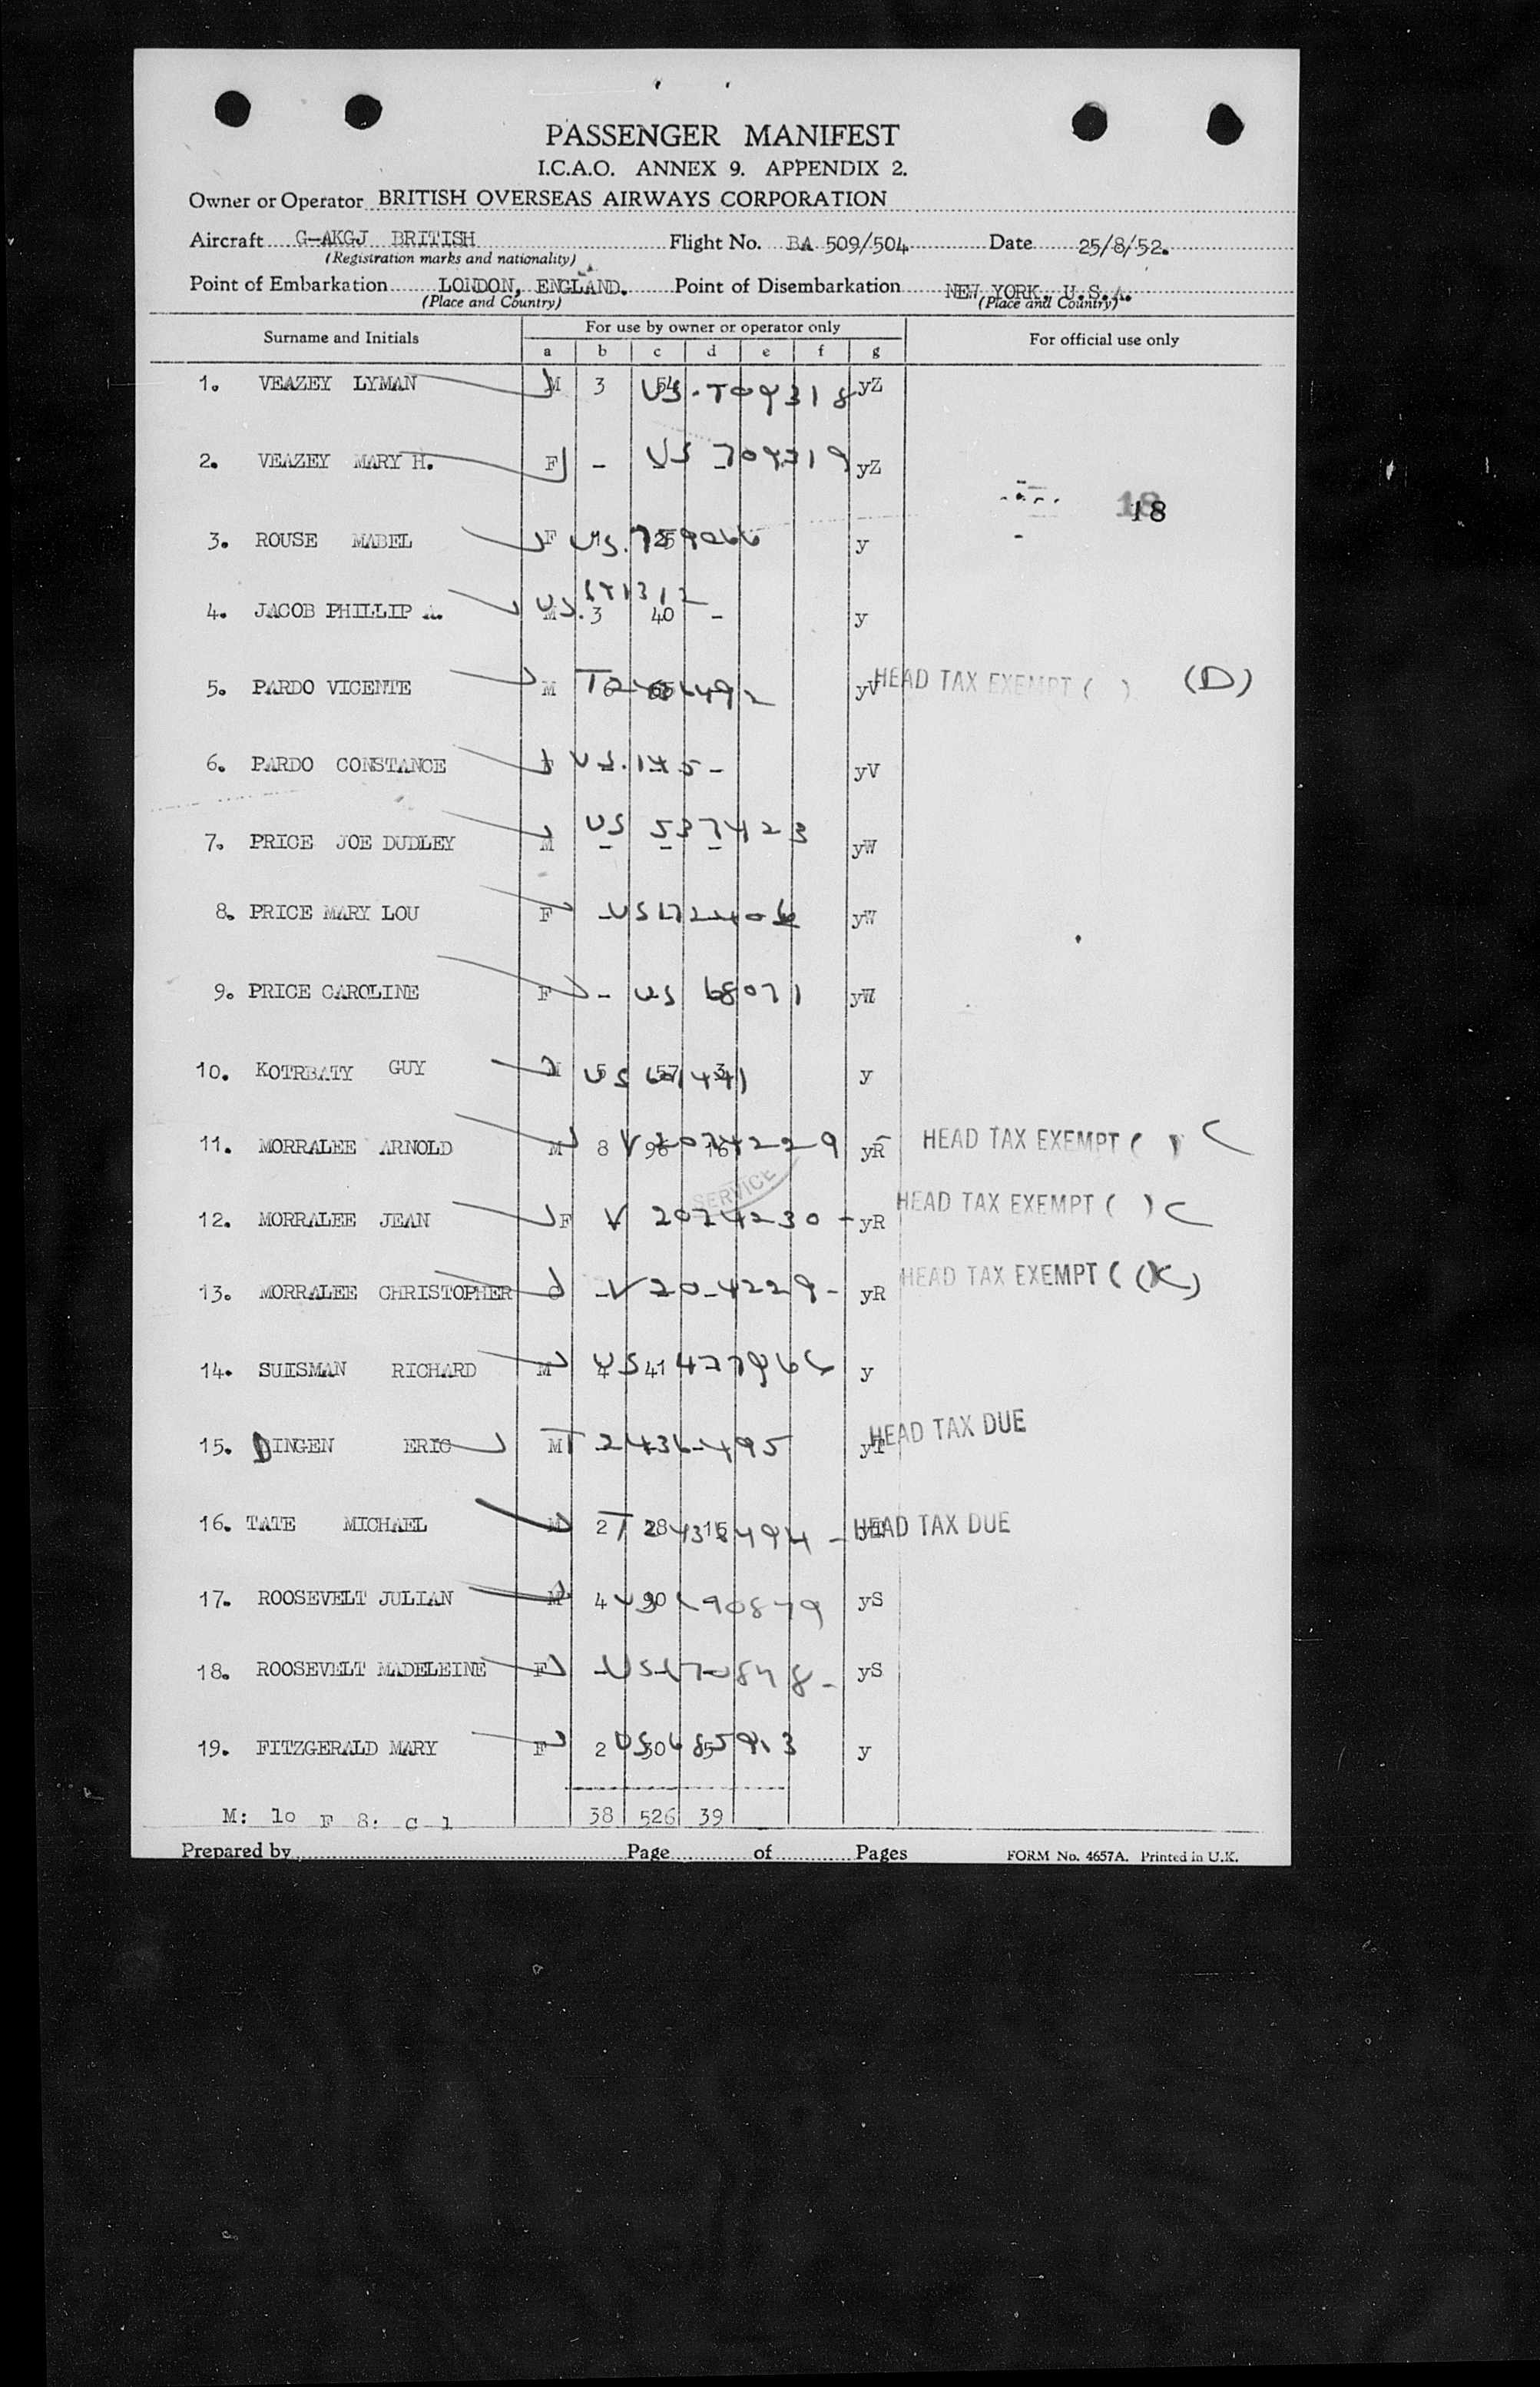 PASSENGER MANIFEST
I.C.A.O. ANNEX 9. APPENDIX 2.
Owner or Operator BRITISH OVERSEAS AIRWAYS CORPORATION
Aircraft G-AKGJ BRITISH Flight No. BA 509/504 Date 25/8/52.
(Registration marks and nationality)
Point of Embarkation LONDON, ENGLAND. Point of Disembarkation NEW YORK, U.S.A.
(Place and Country) (Place and Country)
Surname and Initials For use by owner or operator only For official use only
a b c d e f g
1. VEAZEY LYMAN M 3 54 US. yZ
2. VEAZEY MARY H. F - US yZ
18
3. ROUSE MABEL F US. y
4. JACOB PHILLIP A. M US. 3 40 - y
5. PARDO VICENTE M yV HEAD TAX EXEMPT ( ) (D)
6. PARDO CONSTANCE US. 145 - yV
7. PRICE JOE DUDLEY M US 537423 yW
8. PRICE MARY LOU F - US yW
9. PRICE CAROLINE F - US 68071 yW
10. KOTRBATY GUY M US 57 y
11. MORRALEE ARNOLD M 8 V 2074229 yR HEAD TAX EXEMPT ( ) C
SERVICE
12. MORRALEE JEAN F V 2074230 - yR HEAD TAX EXEMPT ( ) C
13. MORRALEE CHRISTOPHER - V yR HEAD TAX EXEMPT (
14. SUISMAN RICHARD M US 41 y
15. DINGEN ERIC M T yT HEAD TAX DUE
16. TATE MICHAEL M 2 T 28 HEAD TAX DUE
17. ROOSEVELT JULIAN M 4 yS
18. ROOSEVELT MADELEINE F - US yS
19. FITZGERALD MARY F 2 US y
38 526 39
M: 10 F 8: C 1
Prepared by Page of Pages FORM No. 4657A. Printed in U.K.